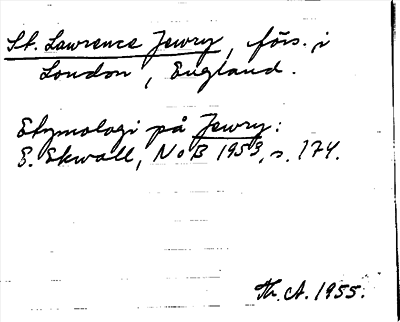 St. Lawrence Jewry, förs. i
London, England.
Etymologi på Jewry:
E. Ekwall, NoB 1953, s. 174.
Th. A. 1955.